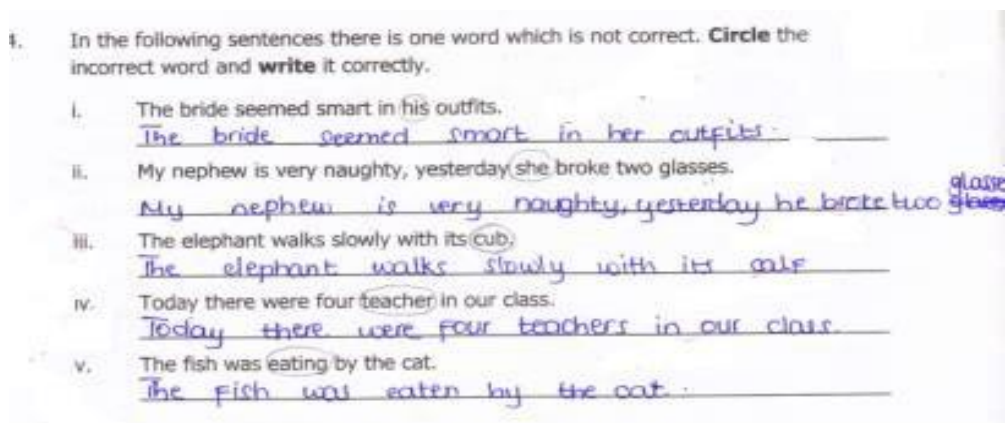 4. In the following sentences there is one word which is not correct. Circle the
incorrect word and write it correctly.
i. The bride seemed smart in his outfits.
The bride seemed smart in her outfits.
ii. My nephew is very naughty, yesterday she broke two glasses.
glasse
My nephew is very naughty, yesterday he broke two
iii. The elephant walks slowly with its cub.
The elephant walks slowly with its calf
iv. Today there were four teacher in our class.
Today there were four teachers in our class.
v. The fish was eating by the cat.
The fish was eaten by the cat.